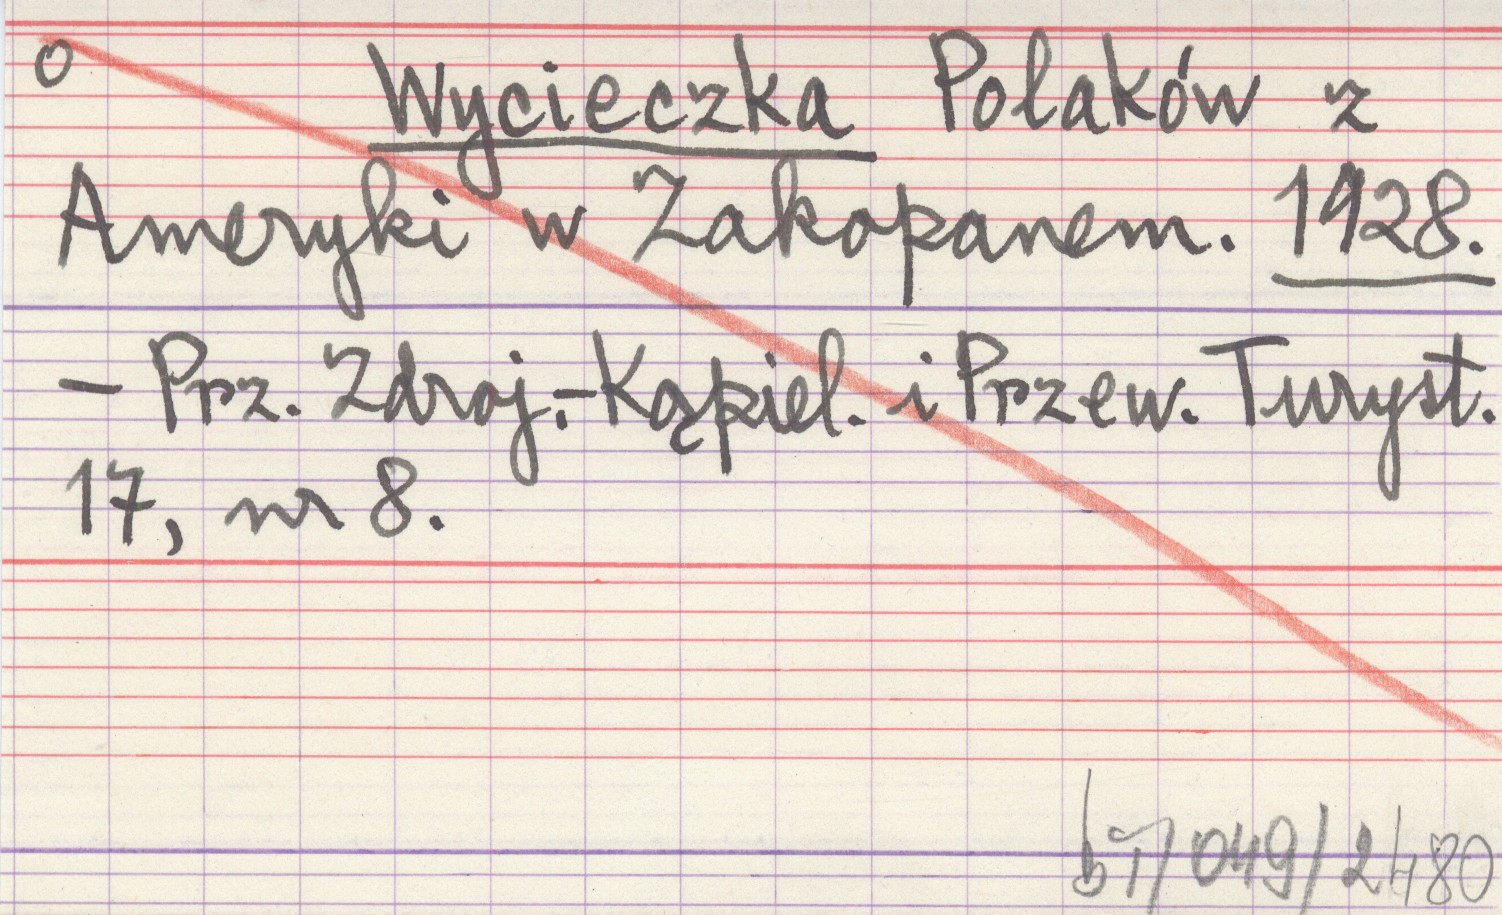 o Wycieczka Polaków z
Ameryki w Zakopanem. 1928.
– Prz. Zdroj.-Kąpiel. i Przew. Turyst.
17, nr 8.
bT/049/2480